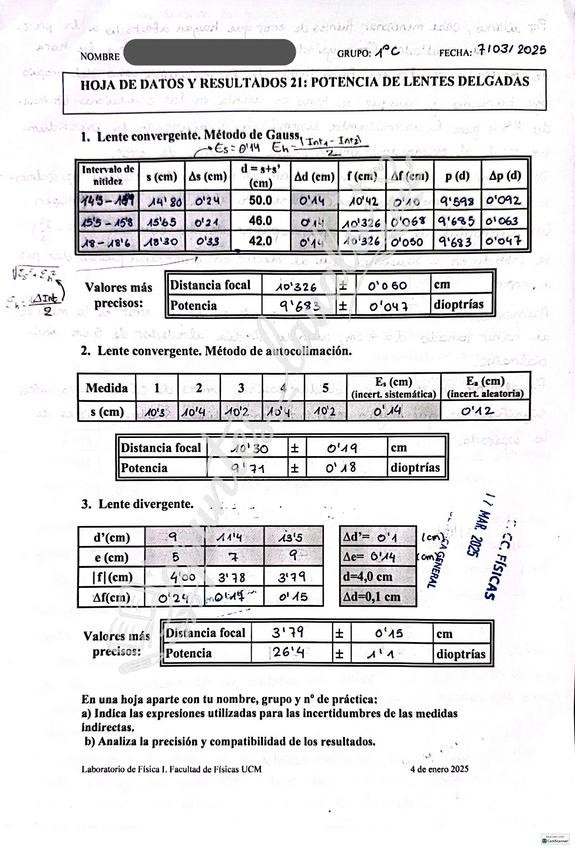 NOMBRE GRUPO: 1ºC FECHA: 7/03/2025
HOJA DE DATOS Y RESULTADOS 21: POTENCIA DE LENTES DELGADAS
1. Lente convergente. Método de Gauss.
Es = 0'14 Eh = (Int1 - Int2)/2
Intervalo de nitidez s (cm) Δs (cm) d = s+s' (cm) Δd (cm) f (cm) Δf (cm) p (d) Δp (d)
14'5 - 14'80 0'24 50.0 0'14 10'42 0'10 9'598 0'092
15'5 - 15'8 15'65 0'21 46.0 0'14 10'326 0'068 9'685 0'063
18 - 18'6 18'30 0'33 42.0 0'14 10'326 0'050 9'683 0'047
Valores más precisos:
Distancia focal 10'326 ± 0'060 cm
Potencia 9'683 ± 0'047 dioptrías
Eh = ΔInt/2
2. Lente convergente. Método de autocolimación.
Medida 1 2 3 4 5 Es (cm) (incert. sistemática) Ea (cm) (incert. aleatoria)
s (cm) 10'3 10'4 10'2 10'4 10'2 0'14 0'12
Distancia focal 10'30 ± 0'19 cm
Potencia 9'71 ± 0'18 dioptrías
3. Lente divergente.
d'(cm) 9 11'4 13'5 Δd'= 0'1 (cm)
e (cm) 5 7 9 Δe= 0'14 (cm)
|f| (cm) 4'00 3'78 3'79 d=4,0 cm
Δf(cm) 0'24 0'17 0'15 Δd=0,1 cm
CC. FÍSICAS
17 MAR. 2025
GENERAL
Valores más precisos:
Distancia focal 3'79 ± 0'15 cm
Potencia 26'4 ± 1'1 dioptrías
En una hoja aparte con tu nombre, grupo y nº de práctica:
a) Indica las expresiones utilizadas para las incertidumbres de las medidas
indirectas.
b) Analiza la precisión y compatibilidad de los resultados.
Laboratorio de Física I. Facultad de Físicas UCM 4 de enero 2025
CamScanner